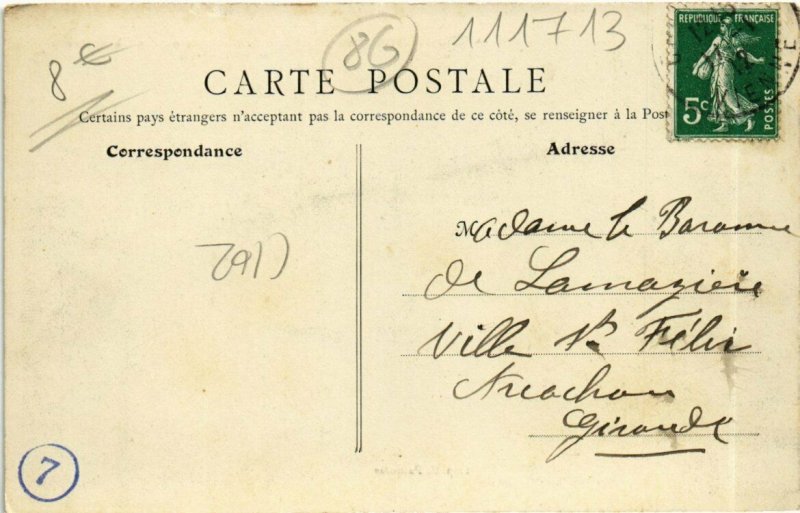 8€
86
111713
REPUBLIQUE FRANÇAISE
5c
POSTES
CARTE POSTALE
Certains pays étrangers n'acceptent pas la correspondance de ce côté, se renseigner à la Post
Correspondance
Adresse
Madame la Baronne
de Lamazière
Ville St Félix
Arcachon
Gironde
7